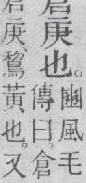 庚也。
豳風毛
傳曰。倉
庚鵹黃也。又